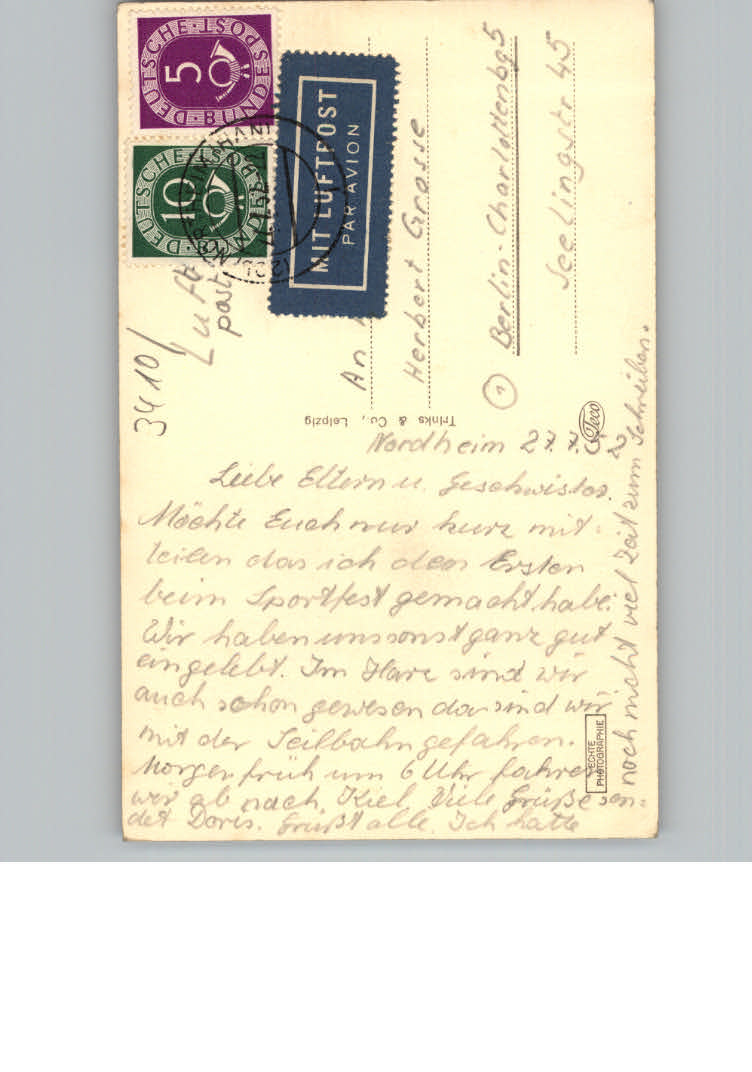 DEUTSCHE BUNDESPOST
5
DEUTSCHE BUNDESPOST
10
MIT LUFTPOST
PAR AVION
Luft
post
3410/
An
Herbert Grosse
① Berlin-Charlottenbg 5
Seelingstr 45
Trinks & Co., Leipzig
Teco
Nordheim 27.7.52
Liebe Eltern u. Geschwister.
Möchte Euch nur kurz mit=
teilen das ich den Ersten
beim Sportfest gemacht habe.
Wir haben uns sonst ganz gut
eingelebt. Im Harz sind wir
auch schon gewesen da sind wir
mit der Seilbahn gefahren.
Morgen früh um 6 Uhr fahren
wir ab nach Kiel. Viele Grüße sen=
det Doris. Grüßt alle. Ich hatte
noch nicht viel Zeit zum Schreiben.
ECHTE
PHOTOGRAPHIE